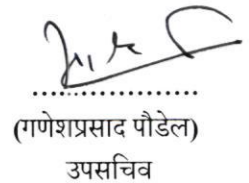 (गणेशप्रसाद पौडेल)
उपसचिव